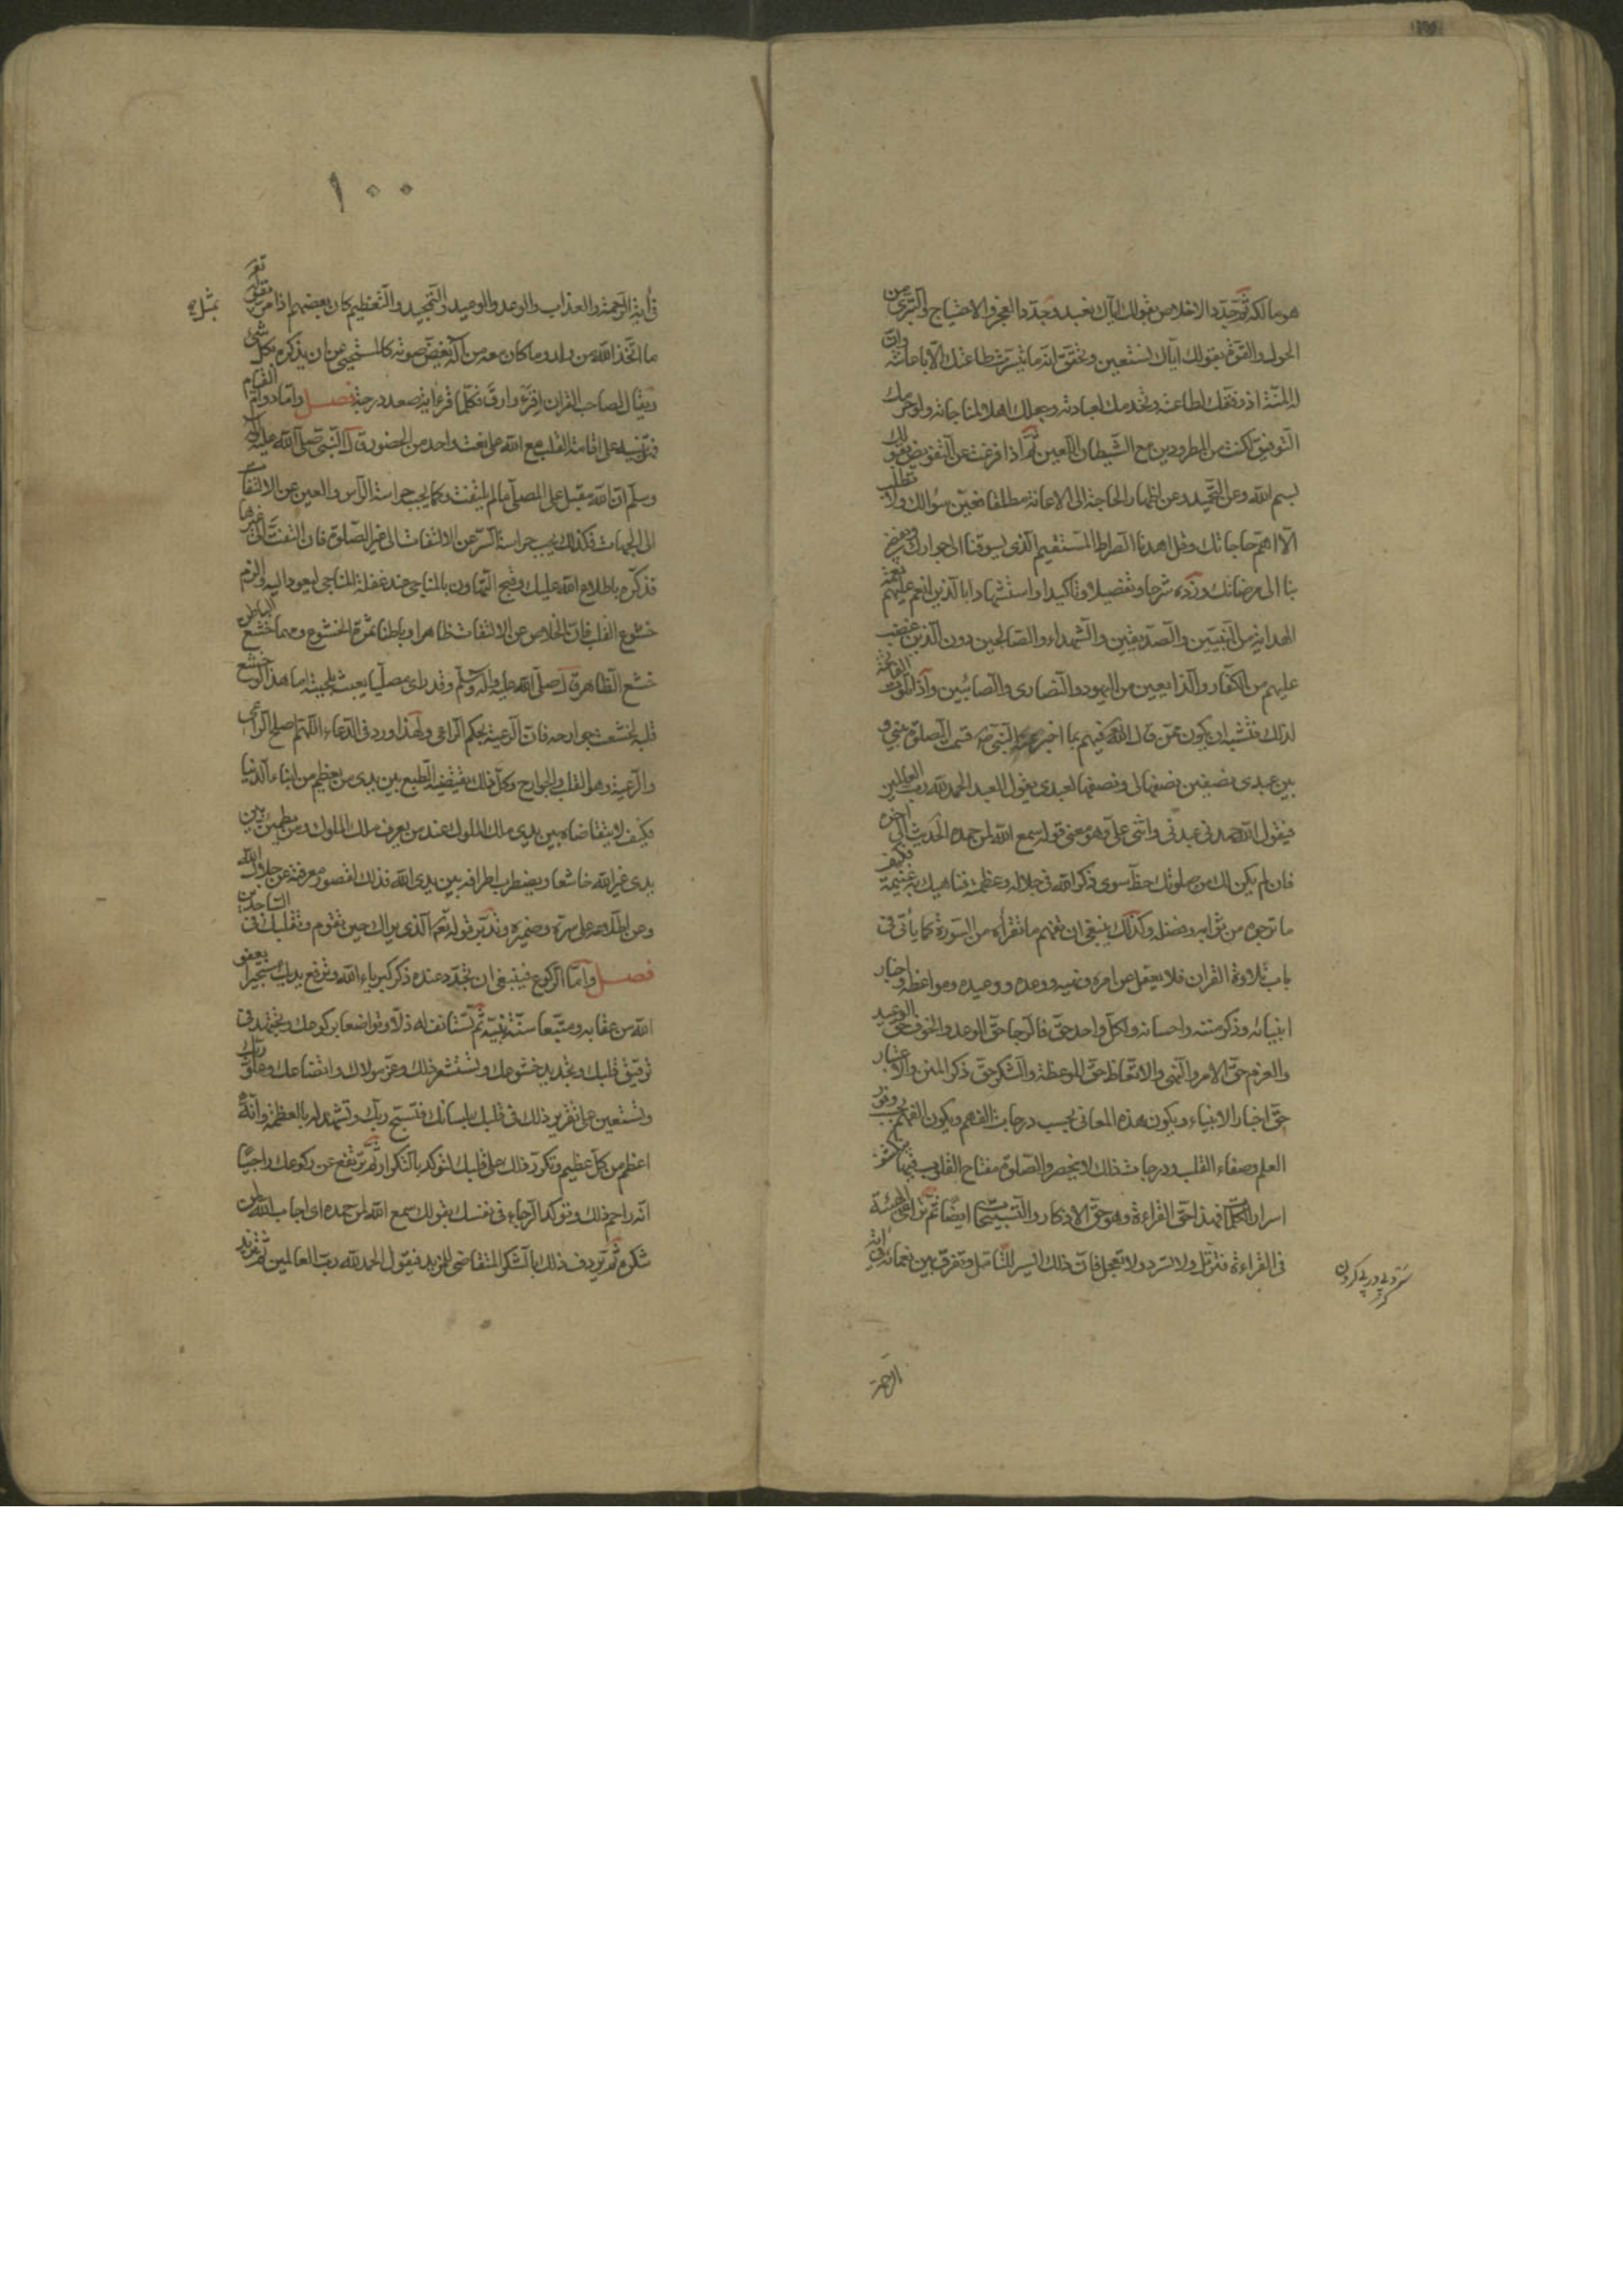 هو مالكه ثم جدد الاخلاص بقولك اياك نعبد وجدد العجز والاحتياج والتبرى من
الحول والقوة بقولك اياك نستعين وتحقق انه ما تيسرت طاعتك الا باعانته وان
له المنة اذ وفقك لطاعته واستخدمك لعبادته وجعلك اهلا لمناجاته ولو حرمك
التوفيق لكنت من المطرودين مع الشيطان اللعين ثم اذا فرغت عن التفويض بقولك
بسم الله وعن التحميد وعن اظهار الحاجة الى الاعانة مطلقا فعين سؤالك ولا تطلب
الا اهم حاجاتك وقل اهدنا الصراط المستقيم الذى يسوقنا الى جوارك ويفضى
بنا الى مرضاتك وزده شرحا وتفصيلا وتاكيدا واستشهادا بالذين انعم عليهم نعمة
الهداية من النبيين والصديقين والشهداء والصالحين دون الذين غضب
عليهم من الكفار والزائغين من اليهود والنصارى والصابئين واذا تلوت الفاتحة
كذلك فتشبه ان يكون ممن قال الله فيهم بما اخبر عنه النبى ص قسمت الصلوة بينى و
بين عبدى نصفين نصفها لى ونصفها لعبدى يقول العبد الحمد لله رب العالمين
فيقول الله حمدنى عبدى واثنى على وهو معنى قوله سمع الله لمن حمده الحديث الى اخره
فان لم يكن لك من صلوتك حظ سوى ذكر الله فى جلاله وعظمته فناهيك به غنيمة فكيف
ما ترجوه من ثوابه وفضله وكذلك ينبغى ان تفهم ما تقرأه من السورة كما يأتى فى
باب تلاوة القران فلا يغفل عن امره ونهيه ووعده ووعيده ومواعظه واخبار
انبيائه وذكر مننه واحسانه ولكل واحد حق فالرجا حق الوعد والخوف حق الوعيد
والعزم حق الامر والنهى والاتعاظ حق الموعظة والشكر حق ذكر المنن والاعتبار
حق اخبار الانبياء ويكون هذه المعانى بحسب درجات الفهم ويكون الفهم بحسب وفور
العلم وصفاء القلب ودرجات ذلك لا ينحصر والصلوة مفتاح القلوب فيها تنكشف
اسرار الكلمات فهذا حق القراءة وهو حق الاذكار والتسبيحات ايضا ثم تراعى الهيئة
فى القراءة فترتل ولا تسرد ولا تعجل فان ذلك ايسر للتامل وتفرق بين نغماته فى اية
سرد پى در پى كردن
الرحمة
١٠٠
فى أية الرحمة والعذاب والوعد والوعيد والتحميد والتعظيم كان بعضهم اذا مر بقوله تعر
بمثل
ما اتخذ الله من ولد وما كان معه من اله يغض صوته كالمستحيى عن ان يذكره بكل شى
ويقال لصاحب القران اقرء وارق فكلما قرء اية صعد درجة فصل واما دوام القيام
فتنبيه على اقامة القلب مع الله على نعت واحد من الحضور قال النبى صلى الله عليه واله
وسلم ان الله مقبل على المصلى ما لم يلتفت وكما يجب حراسة الرأس والعين عن الالتفات
الى الجهات فكذلك يجب حراسة السر عن الالتفات الى غير الصلوة فان التفت الى غيرها
فذكره باطلاع الله عليك وقبح التهاون بالمناجى عند غفلة المناجى ليعود اليه والزم
خشوع القلب فان الخلاص عن الالتفات ظاهرا وباطنا ثمرة الخشوع ومهما خشع الباطن
خشع الظاهر قال صلى الله عليه واله وسلم وقد راى مصليا يعبث بلحيته اما هذا لو خشع
قلبه لخشعت جوارحه فان الرعية بحكم الراعى ولهذا ورد فى الدعاء اللهم اصلح الراعى
والرعية وهو القلب والجوارح وكل ذلك يقتضيه الطبع بين يدى من يعظم من ابناء الدنيا
فكيف لا يتقاضاه بين يدى ملك الملوك عند من يعرف ملك الملوك ومن يطمئن بين
يدى غير الله خاشعا ويضطرب اطرافه بين يدى الله فذلك لقصور معرفته عن جلال الله
وعن اطلاعه على سره وضميره وتدبر قوله تعر الذى يراك حين تقوم وتقلبك فى الساجدين
فصل واما الركوع فينبغى ان تجدد عنده ذكر كبرياء الله وترفع يديك مستجيرا بعفو
الله من عقابه ومتبعا سنة نبيه ثم تستانف له ذلا وتواضعا بركوعك وتجتهد فى
ترقيق قلبك وتجديد خشوعك وتستشعر ذلك وعز مولاك واتضاعك وعلو ربك
وتستعين على تقرير ذلك فى قلبك بلسانك فتسبح ربك وتشهد له بالعظمة وانه
اعظم من كل عظيم وتكرر ذلك على قلبك لتوكد بالتكرار ثم ترتفع عن ركوعك راجيا
انه راحم ذلك وتوكد الرجاء فى نفسك بقولك سمع الله لمن حمده اى اجاب الله لمن
شكره ثم تردف ذلك بالشكر المتقاضى للمزيد فيقول الحمد لله رب العالمين ثم تزيد